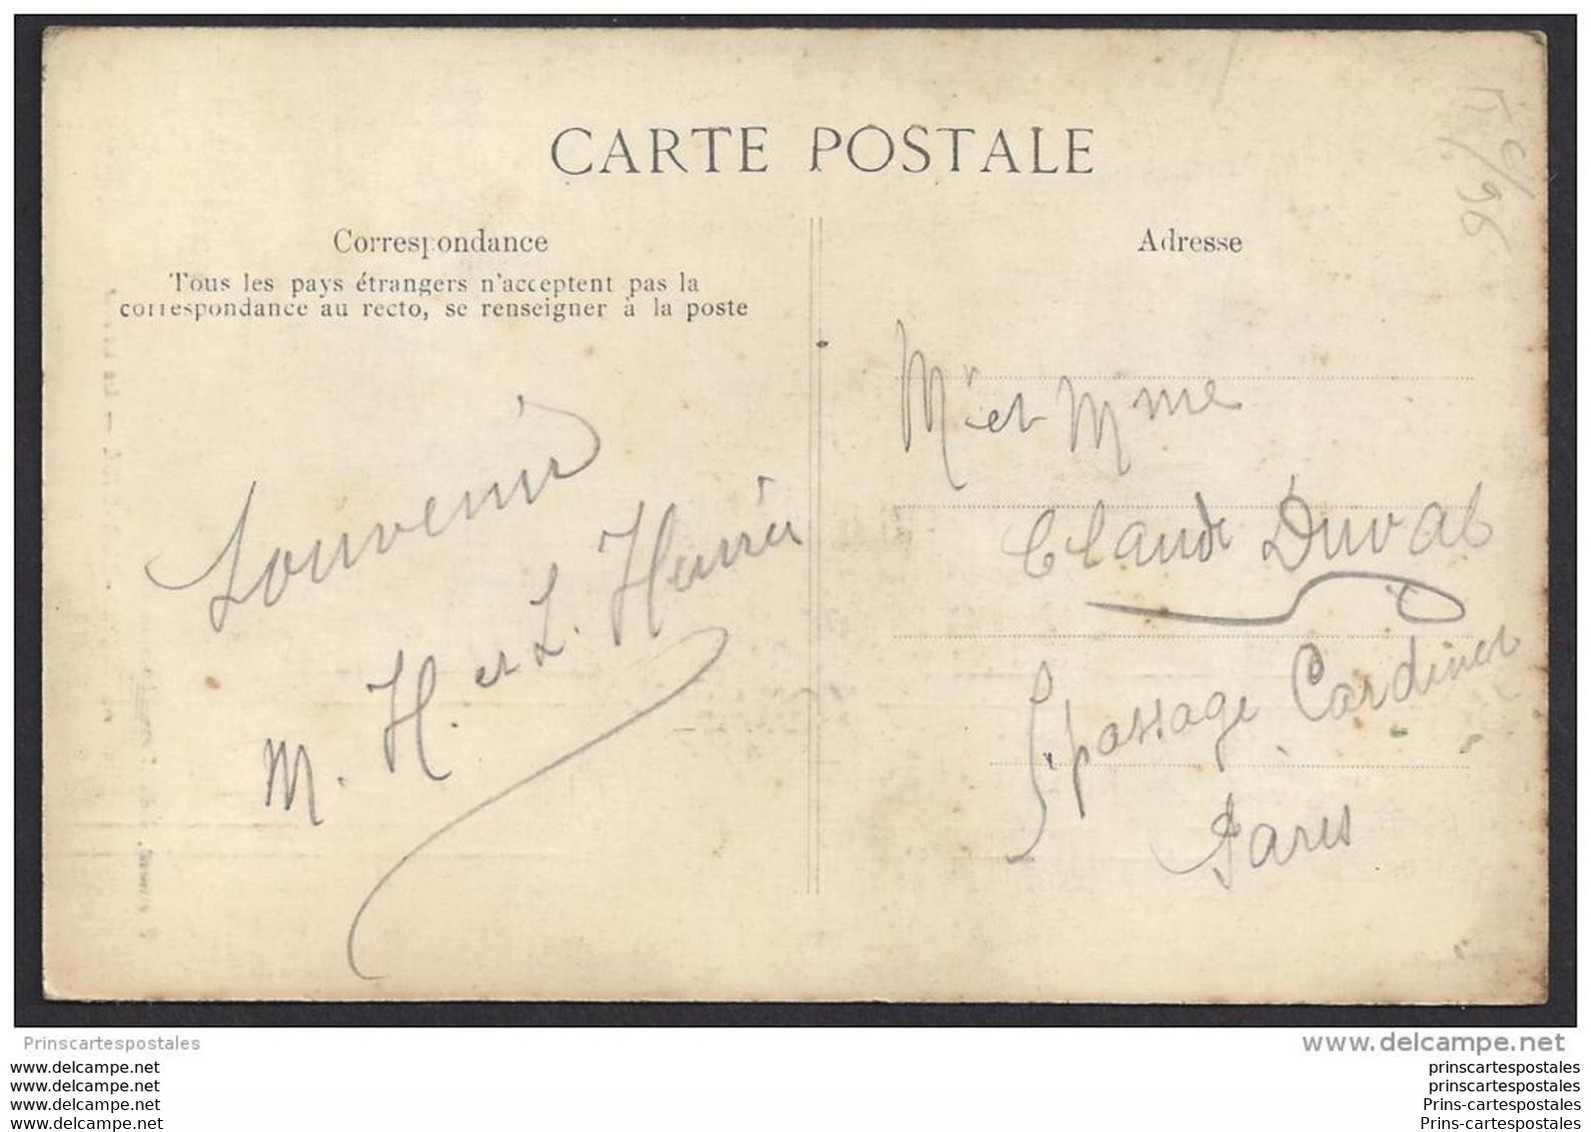 CARTE POSTALE
Correspondance
Tous les pays étrangers n'acceptent pas la
correspondance au recto, se renseigner à la poste
Souvenir
M. H. et L.
Adresse
Mr et Mme
Claude Duval
5, passage Cardinet
Paris
Prinscartespostales
www.delcampe.net
www.delcampe.net
www.delcampe.net
www.delcampe.net
www.delcampe.net
prinscartespostales
prinscartespostales
Prins-cartespostales
Prins-cartespostales